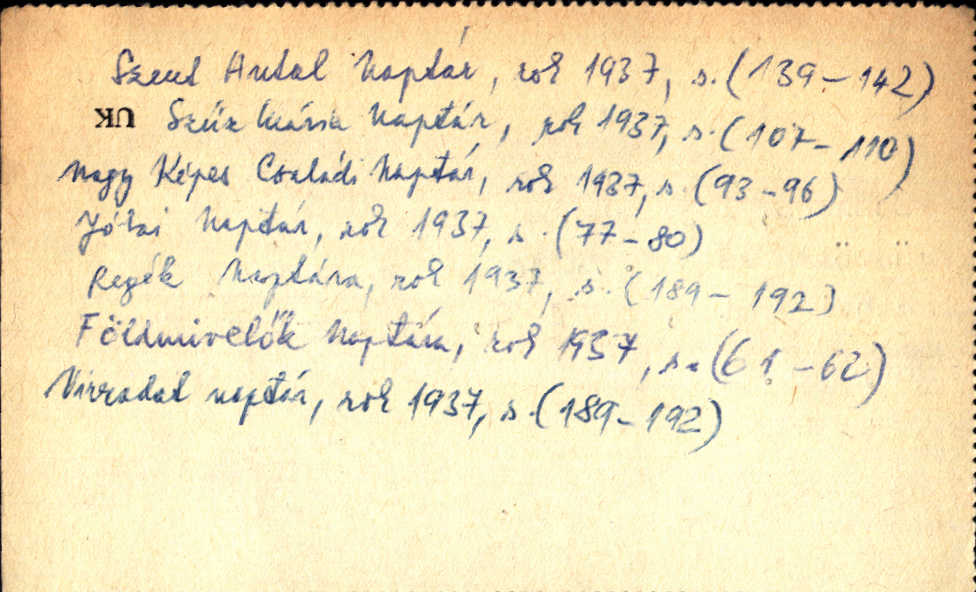 Szent Antal Naptár, rok 1937, s. (139-142)
UK Szűz Mária Naptár, rok 1937, s. (107-110)
Nagy Képes Családi Naptár, rok 1937, s. (93-96)
Jókai Naptár, rok 1937, s. (77-80)
Regék Naptára, rok 1937, s. (189-192)
Földmivelők Naptára, rok 1937, s. (61-62)
Virradat naptár, rok 1937, s. (189-192)